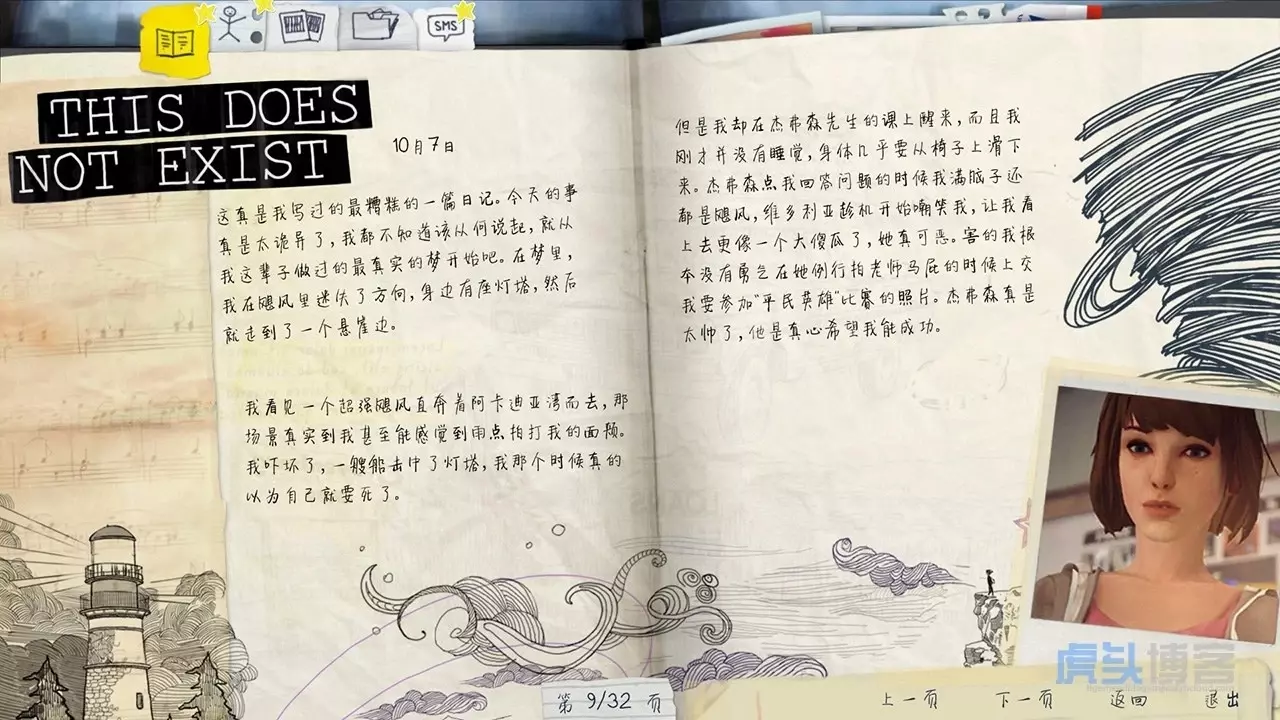 SMS
THIS DOES
NOT EXIST
10月7日
这真是我写过的最糟糕的一篇日记。今天的事
真是太诡异了，我都不知道该从何说起，就从
我这辈子做过的最真实的梦开始吧。在梦里，
我在飓风里迷失了方向，身边有座灯塔，然后
就走到了一个悬崖边。
我看见一个超强飓风直奔着阿卡迪亚湾而去，那
场景真实到我甚至能感觉到雨点拍打我的面颊。
我吓坏了，一艘船击中了灯塔，我那个时候真的
以为自己就要死了。
但是我却在杰弗森先生的课上醒来，而且我
刚才并没有睡觉，身体几乎要从椅子上滑下
来。杰弗森点我回答问题的时候我满脑子还
都是飓风，维多利亚趁机开始嘲笑我，让我看
上去更像一个大傻瓜了，她真可恶。害的我根
本没有勇气在她例行拍老师马屁的时候上交
我要参加“平民英雄”比赛的照片。杰弗森真是
太帅了，他是真心希望我能成功。
虎头博客
第 9/32 页
上一页 下一页 返回 退出